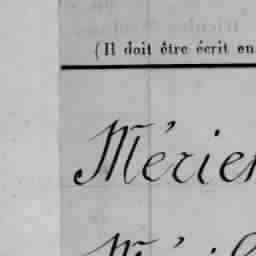 (Il doit être écrit en
Mérien